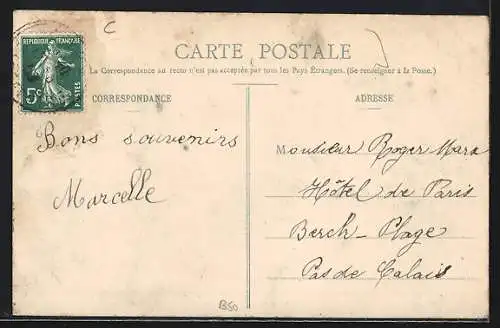 C
REPUBLIQUE FRANÇAISE
5c POSTES
CARTE POSTALE
La Correspondance au recto n'est pas acceptée par tous les Pays Étrangers. (Se renseigner à la Poste.)
CORRESPONDANCE
Bons souvenirs
Marcelle
ADRESSE
Monsieur Roger Mara
Hôtel de Paris
Berck-Plage
Pas de Calais
B50